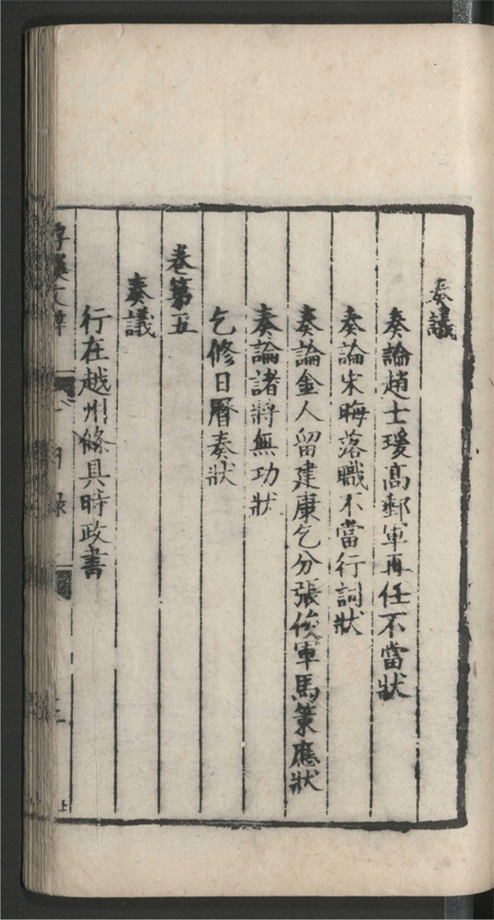 奏議
奏論趙士瑗高郵軍再任不當狀
奏論宋晦落職不當行詞狀
奏論金人留建康乞分張俊軍馬策應狀
奏論諸將無功狀
乞修日曆奏狀
卷第五
奏議
行在越州條具時政書
目録
上